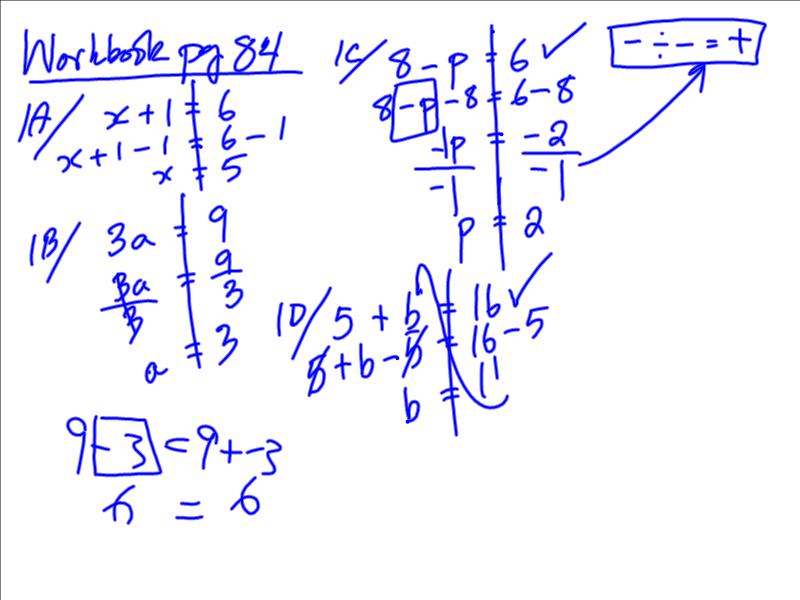 Workbook pg 84
1A/ x + 1 = 6
x + 1 - 1 = 6 - 1
x = 5
1B/ 3a = 9
3a/3 = 9/3
a = 3
9 - 3 = 9 + -3
6 = 6
1C/ 8 - p = 6 ✓
8 - p - 8 = 6 - 8
-1p/-1 = -2/-1
p = 2
- ÷ - = +
1D/ 5 + b = 16 ✓
5 + b - 5 = 16 - 5
b = 11